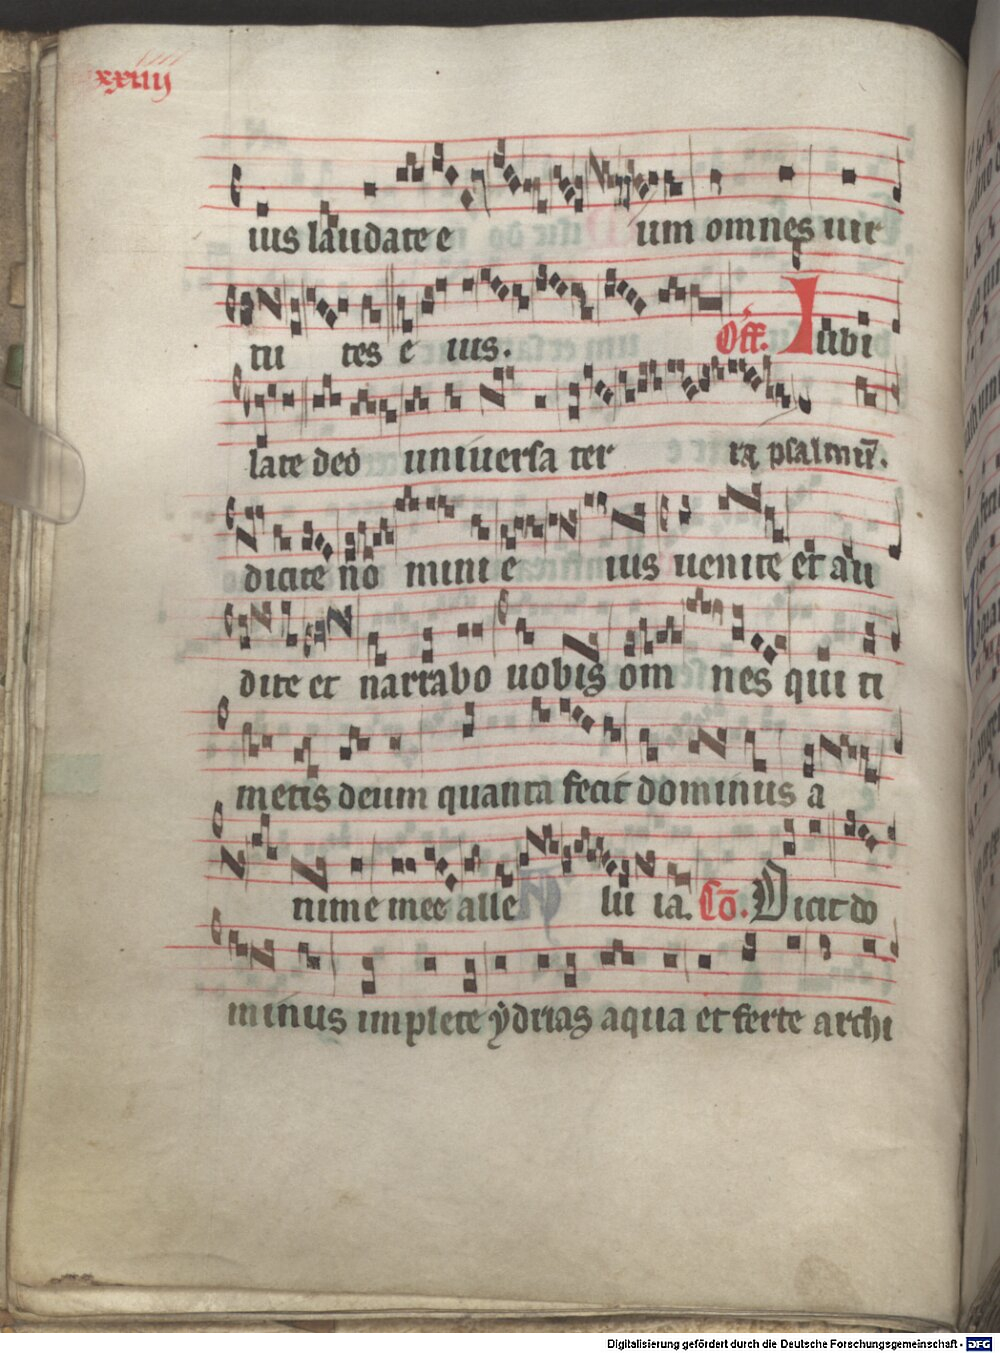 xxiiij
ius laudate e um omnes uir
tu tes e ius. Off. Iubi
late deo uniuersa ter ra psalmū.
dicite no mini e ius uenite et au
dite et narrabo uobis om nes qui ti
metis deum quanta fecit dominus a
nime mee alle lu ia. Cō. Dicit do
minus implete ẏdrias aqua et ferte archi
Digitalisierung gefördert durch die Deutsche Forschungsgemeinschaft - DFG